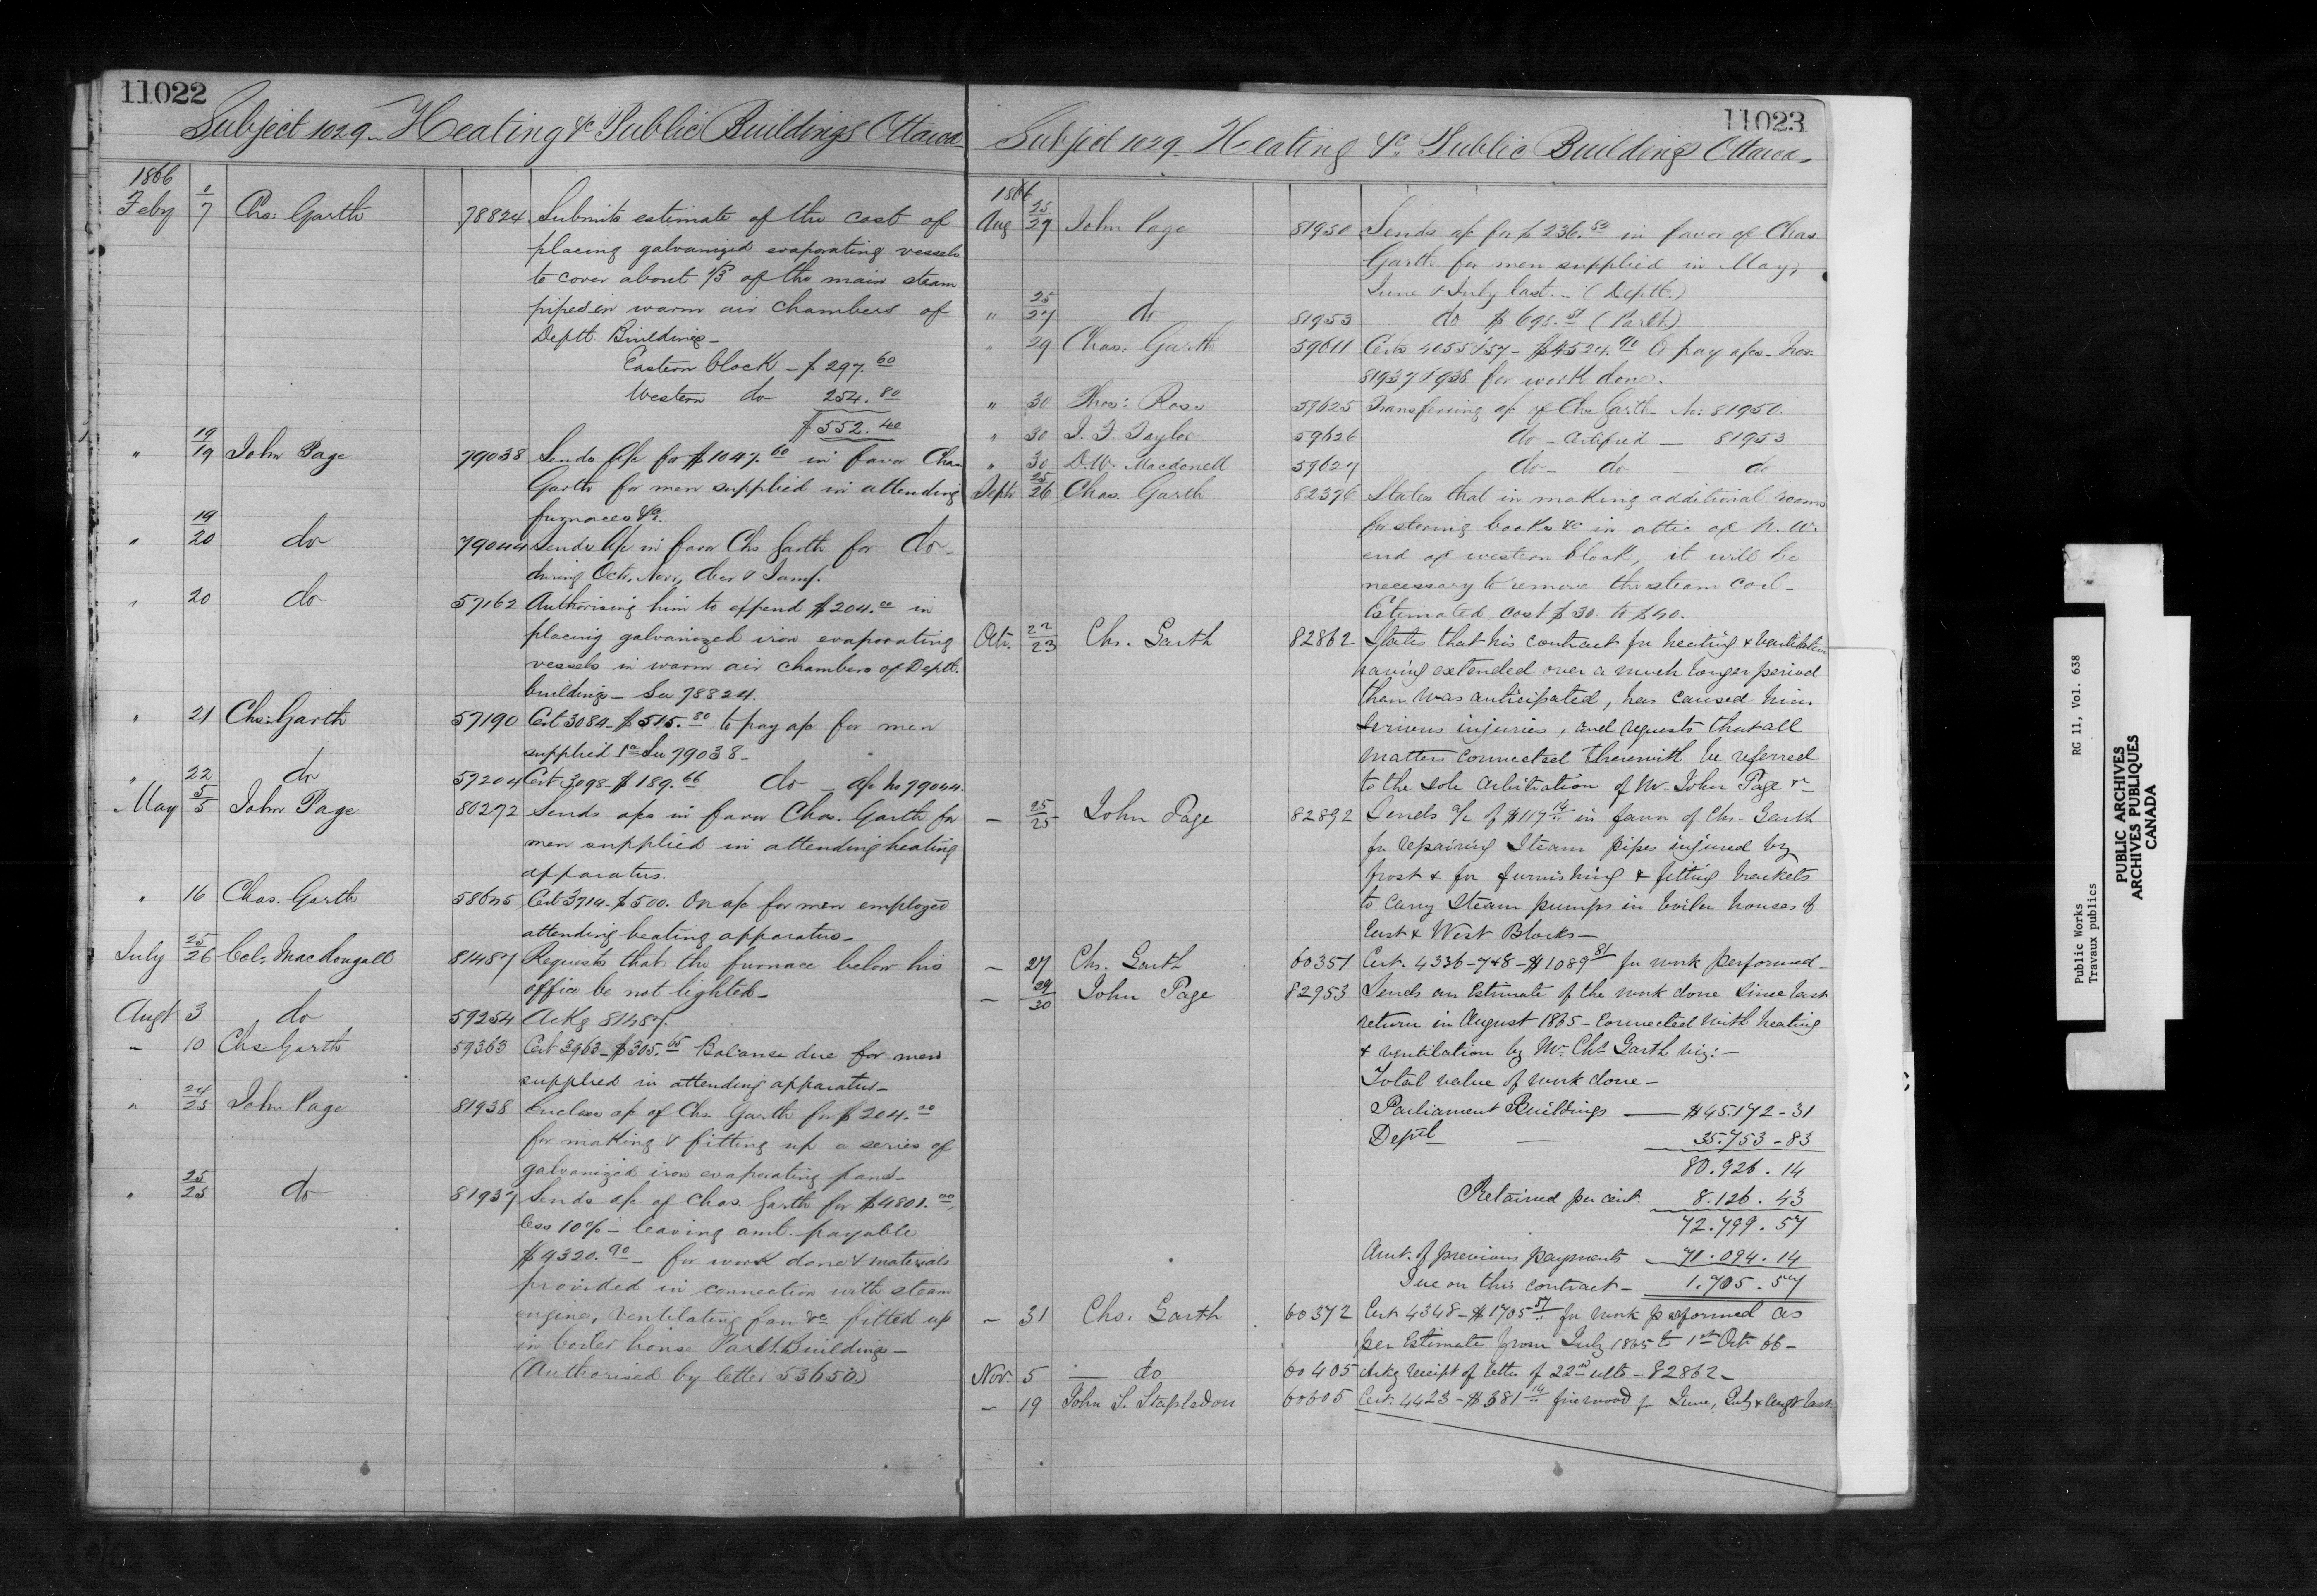 11022
Subject 1029 - Heating &c Public Buildings Ottawa
1866
Feby 7 Chs: Garth 78824 Submits estimate of the cost of
placing galvanized evaporating vessels
to cover about 1/3 of the main steam
pipes in warm air chambers of
Deptl. Buildings -
Eastern block - $297.60
Western do 254.80
$552.40
" 19/19 John Page 79038 Sends a/c for $1047.60 in favor Chas
Garth for men supplied in attending
furnaces &c.
" 19/20 do 79044 Sends a/c in favor Chs Garth for do -
during Octr, Novr, Decr & Jany.
" 20 do 57162 Authorising him to expend $204.00 in
placing galvanized iron evaporating
vessels in warm air chambers of Deptl.
buildings - See 78824.
" 21 Chs: Garth 57190 Cert 3084 - $515.80 to pay a/c for men
supplied &c See 79038 -
" 22 do 57204 Cert 3098 - $189.66 do - a/c no 79044.
May 5/5 John Page 80272 Sends a/cs in favor Chas. Garth for
men supplied in attending heating
apparatus.
" 16 Chas. Garth Cert 3714 - $500. On a/c for men employed
attending heating apparatus -
July 25/26 Col. MacDougall 81487 Requests that the furnace below his
office be not lighted -
Augt 3 do 59254 Ackg 81487.
- 10 Chs Garth 59363 Cert 3963 - $305.65 Balance due for men
supplied in attending apparatus -
" 24/25 John Page 81938 Encloses a/c of Chs Garth for $204.00
for making & fitting up a series of
galvanized iron evaporating pans -
" 25/25 do 81937 Sends a/c of Chas. Garth for $4801.00,
less 10% - leaving amt. payable
$4320.90 - for work done & materials
provided in connection with steam
engine, ventilating fan &c fitted up
in boiler house Parlt. Buildings -
(Authorised by letter 53650.)
11023
Subject 1029 - Heating &c. Public Buildings Ottawa.
1866
Aug 25/27 John Page 81950 Sends a/c for $236.82 in favor of Chas.
Garth for men supplied in May,
June & July last. - (Deptl.)
" 25/27 do 81953 do $698. (Parlt.)
" 29 Chas. Garth 59611 Certs 4055 & 57 - $4524.90 to pay a/cs - Nos.
81937 & 938 for work done.
" 30 Thos: Ross 59625 Transferring a/c of Chs Garth - No: 81950.
" 30 J. F. Taylor 59626 do - certified - 81953
" 30 D.W. Macdonell 59627 do - do - do
Septr 25/26 Chas. Garth 82376 States that in making additional rooms
for storing books &c in attic of N. W.
end of western block, it will be
necessary to remove the steam coil -
Estimated cost $30. to $40.
Octr. 22/23 Chs. Garth 82862 States that his contract for heating & ventilation
having extended over a much longer period
than was anticipated, has caused him
serious injuries, and requests that all
matters connected therewith be referred
to the sole arbitration of Mr. John Page &c
- 25/25 John Page 82892 Sends a/c of $117.14 in favor of Chs. Garth
for repairing Steam pipes injured by
frost & for furnishing & fitting brackets
to carry Steam pumps in boiler houses of
East & West Blocks -
- 27 Chs. Garth 60351 Cert. 4336 - 7 & 8 - $1089.81 for work performed -
- 29/30 John Page 82953 Sends an Estimate of the work done since last
return in August 1865 - connected with heating
& ventilation by Mr. Chs Garth viz: -
Total value of work done -
Parliament Buildings - $45.172 - 31
Deptl - 35.753 - 83
80.926.14
Retained per cent. 8.126.43
72.799.57
Amt. of previous payments - 71.094.14
Due on this contract - 1.705.57
- 31 Chs. Garth 60372 Cert 4348 - $1705.57 for work performed as
per Estimate from July 1865 to 1st Octr 66 -
Nov. 5 do 60405 Ackg receipt of letter of 22nd ulto - 82862 -
- 19 John S. Stapledon 60605 Cert. 4423 - $381.14 firewood for June, July & Augt last.
Public Works RG 11, Vol. 638
Travaux publics
PUBLIC ARCHIVES
ARCHIVES PUBLIQUES
CANADA